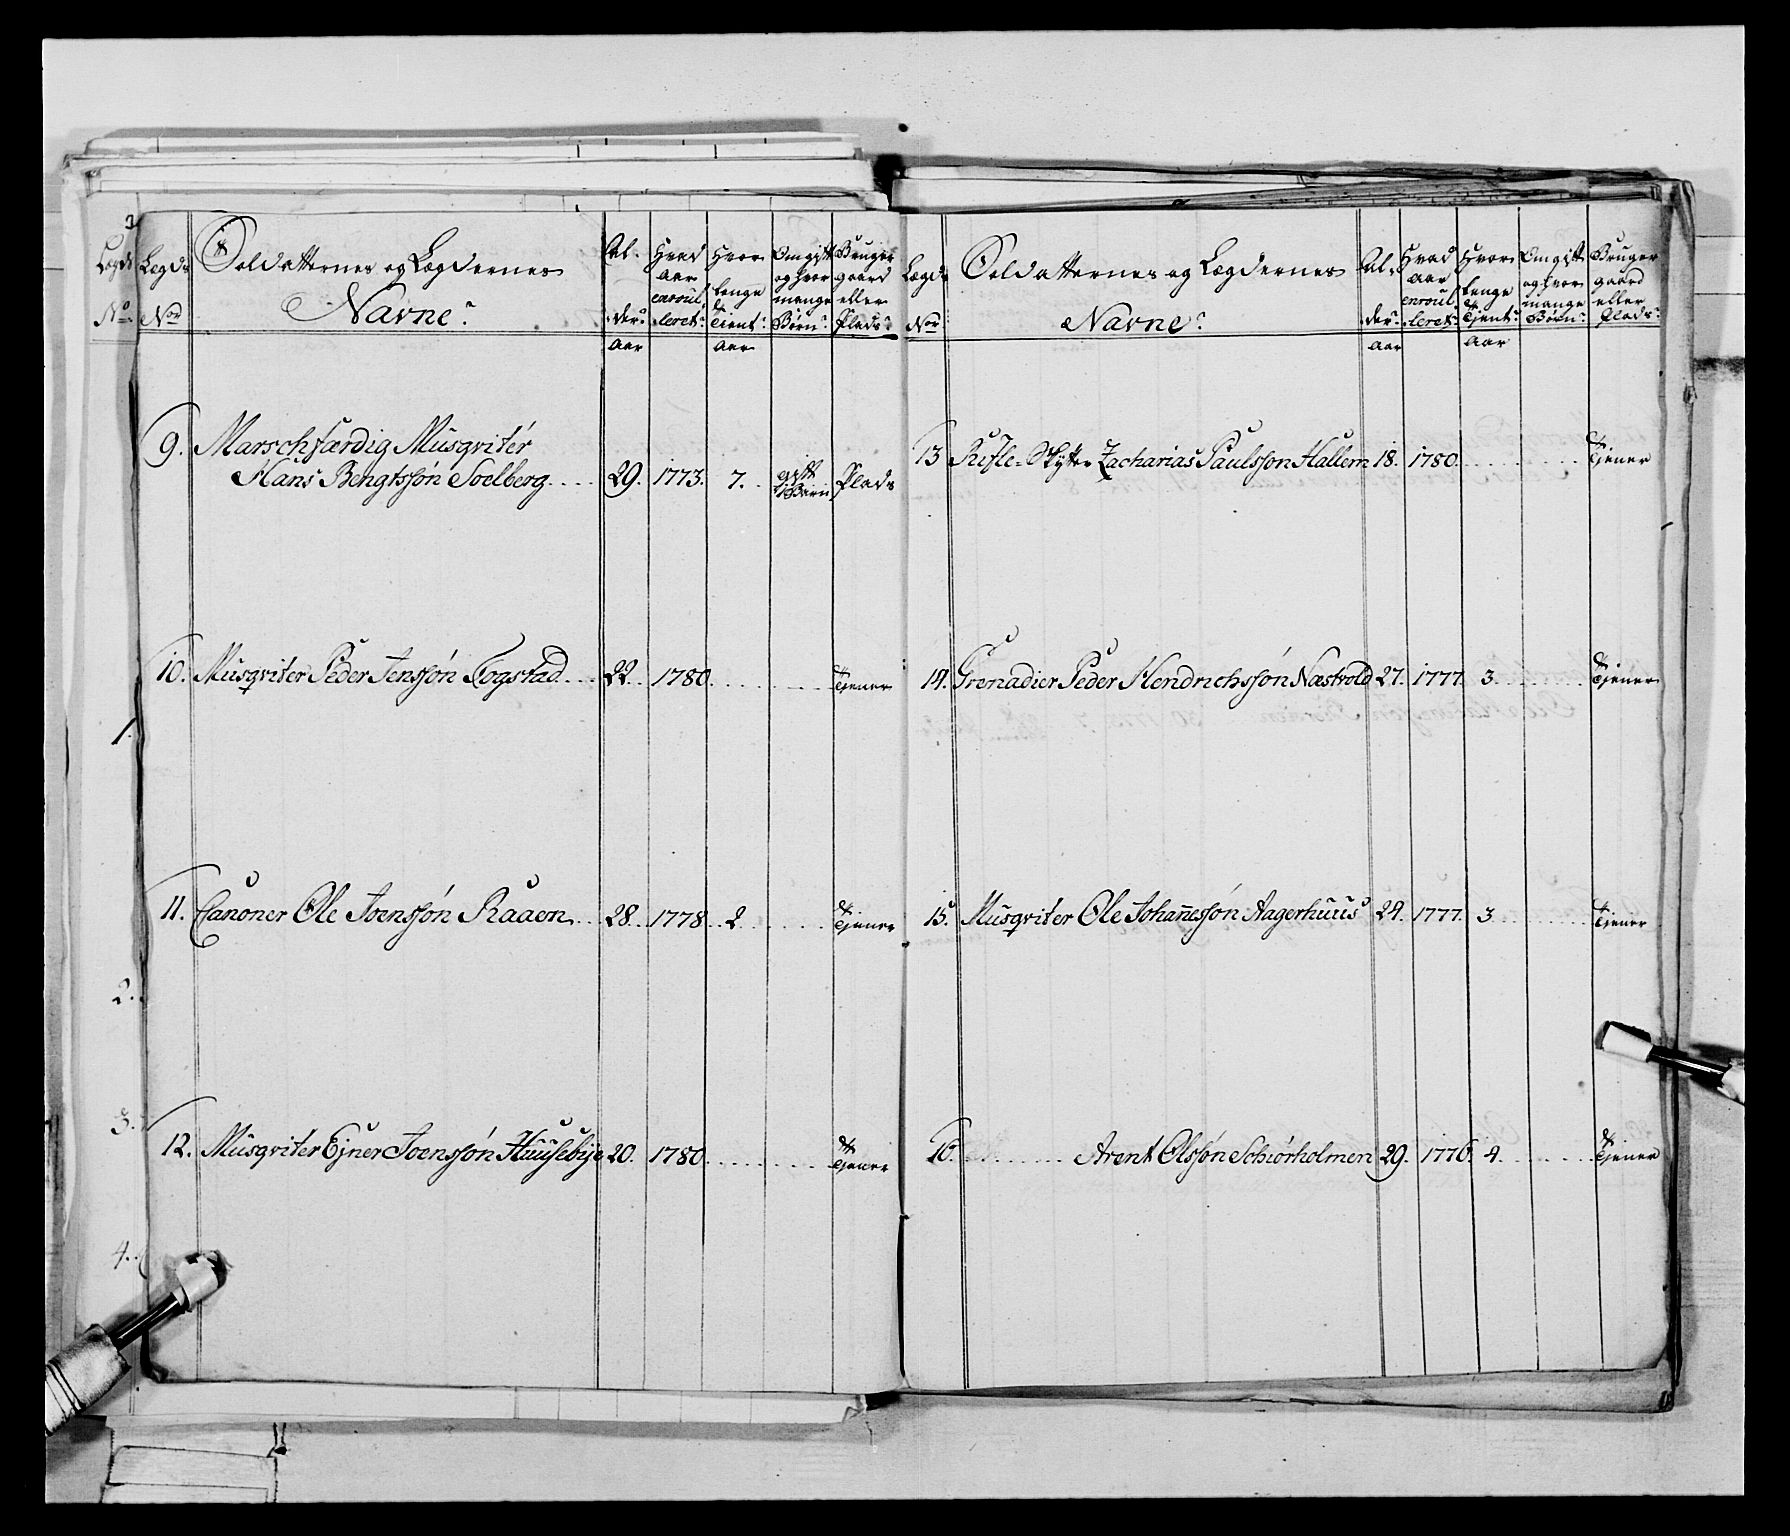 Legds Nor
Soldatternes og Legdernes
Navne
Al-
der
Hvad
aar
enroul
leret
Hvor
lenge
Tient
Om gift
og hvor
mange
Børn
Bruger
gaard
eller
Plads
aar aar
9. Marschfærdig Musqvitér
Hans Bengtssøn Soelberg .... 29. 1773. 7. gift 1 Barn Plads
10. Musqviter Peder Jenssøn Togstad ... 22. 1780. Tjener
11. Canoner Ole Joenssøn Raaen .. 28. 1778. 2. Tjener
12. Musqviter Ejner Joenssøn Huusebÿe 20. 1780. Tjener
Legds Nor
Soldatternes og Legdernes
Navne
Al-
der
Hvad
aar
enroul
leret
Hvor
lenge
Tjent
Om gift
og hvor
mange
Børn
Bruger
gaard
eller
Plads
aar aar
13 Rifle-Skytter Zacharias Paulssøn Hallem 18. 1780. Tjener
14. Grenadier Peder Hendrichssøn Næstvold 27. 1777. 3. Tjener
15. Musqviter Ole Johan̄essøn Aagerhuus 24. 1777. 3. Tjener
16. ........ Arent Olssøn Schiørholmen 29. 1776. 4. Tjener
Legds
No
1.
2.
3.
4.